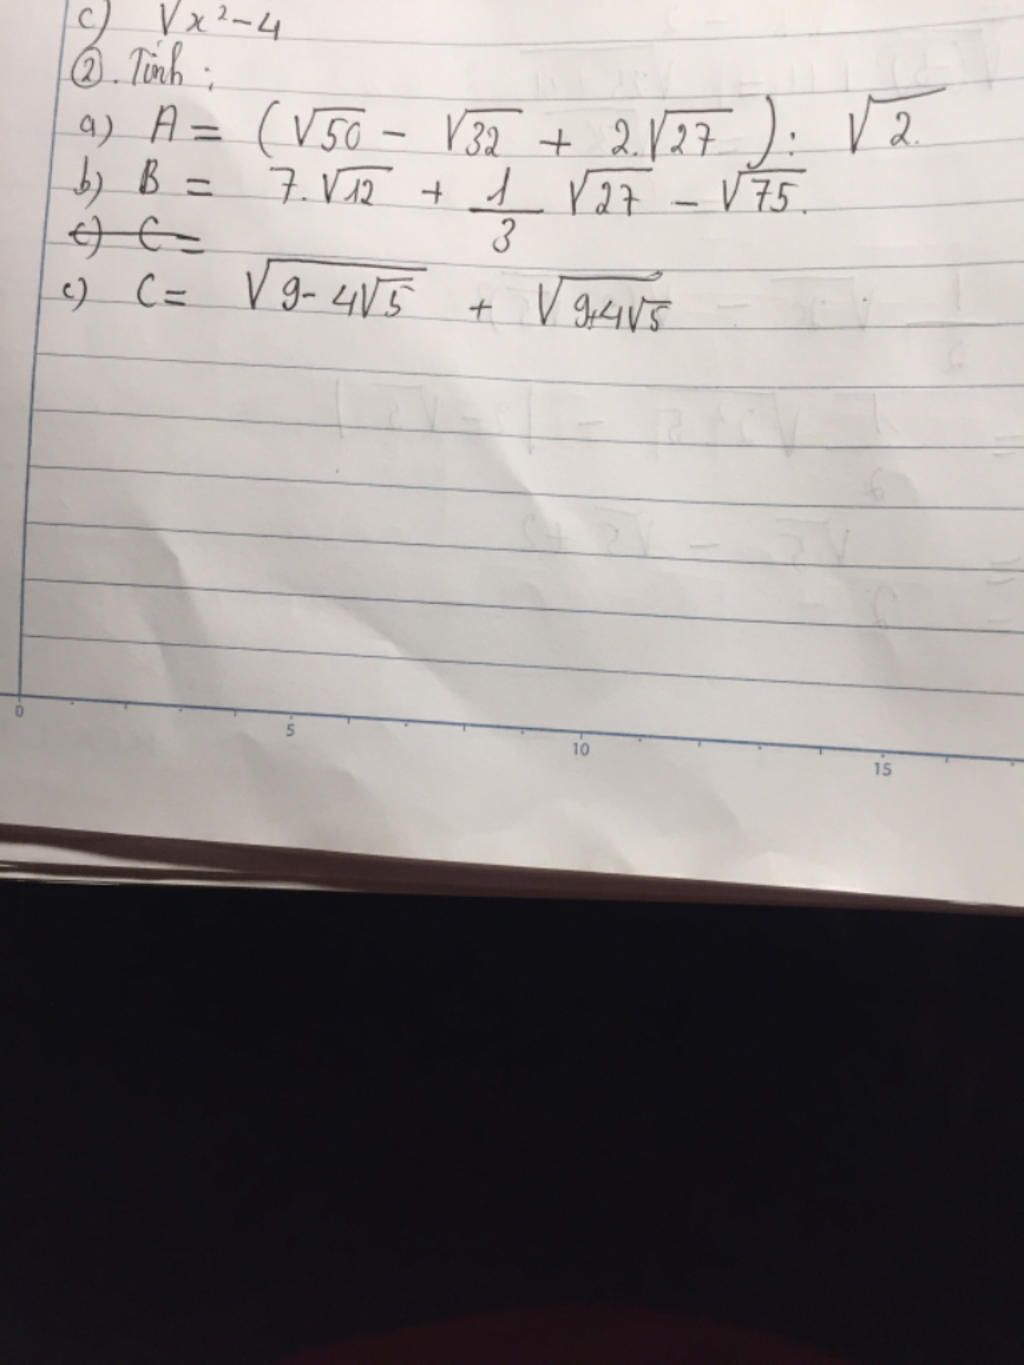 c) √x²-4
②. Tính:
a) A = (√50 - √32 + 2.√27): √2.
b) B = 7.√12 + 1/3 √27 - √75.
c) C =
c) C = √9-4√5 + √9+4√5
0 5 10 15